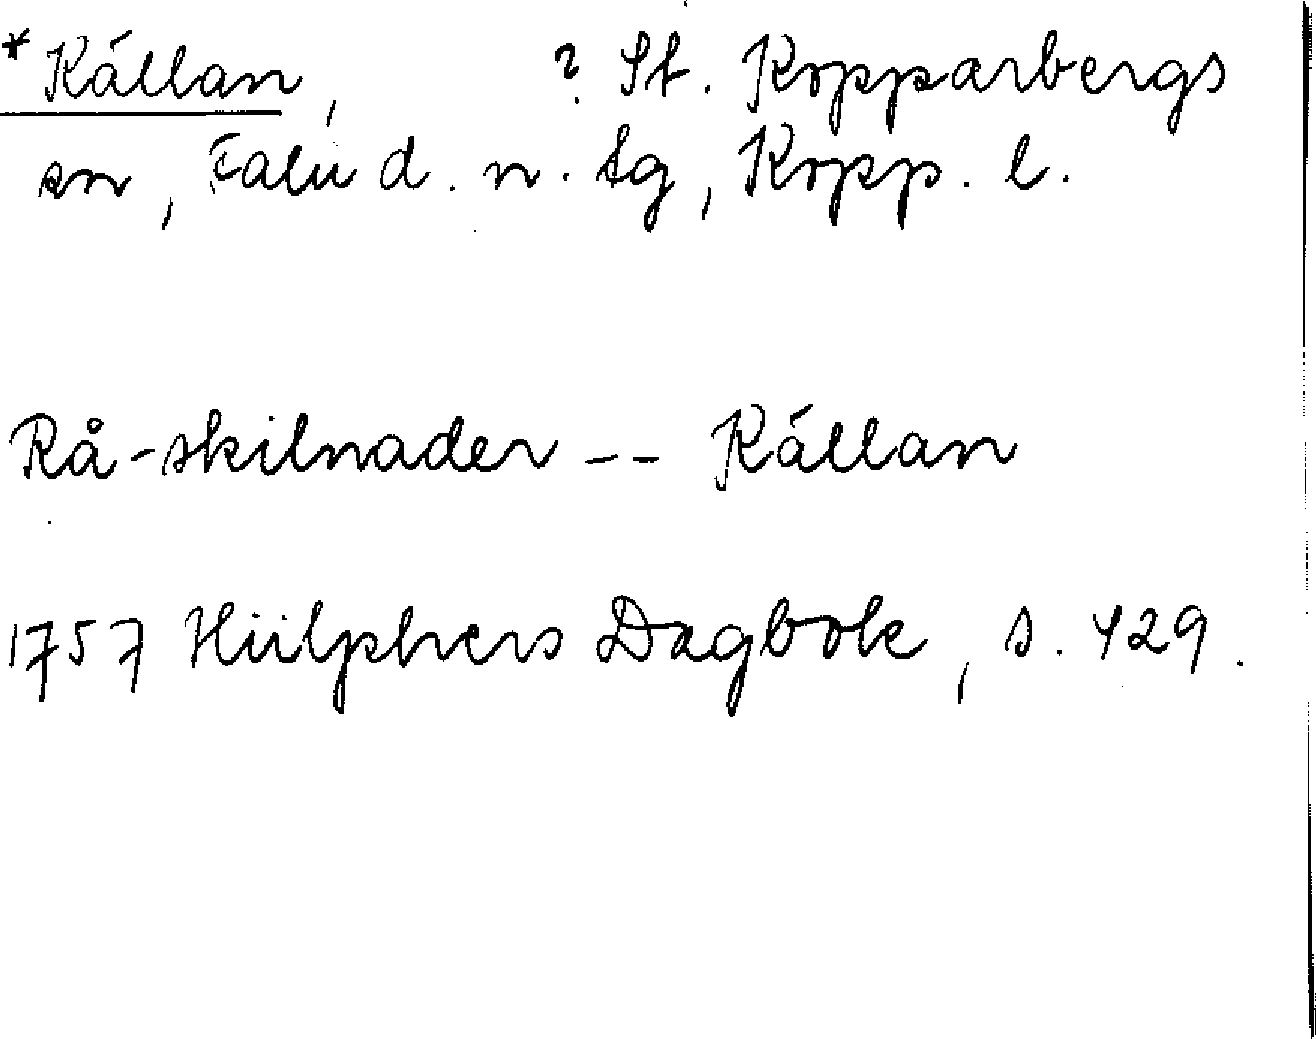 *Källan, ? St. Kopparbergs
sn, Falu d. n. tg, Kopp. l.
Rå-skilnader -- Källan
1757 Hülphers Dagbok, s. 429.